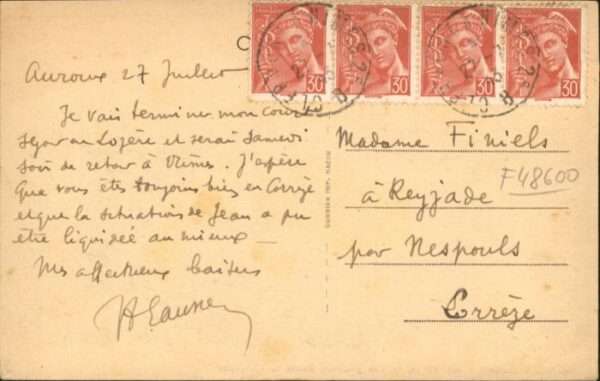 Auroux 27 Juillet
Je vais terminer mon court
séjour en Lozère et serai samedi
soir de retour à Nîmes. J'espère
que vous êtes toujours bien en Corrèze
et que la situation de Jean a pu
être liquidée au mieux
Mes affectueux baisers
C
30
30
30
30
Madame Finiels
à Reyjade
par Nespouls
Corrèze
F48600